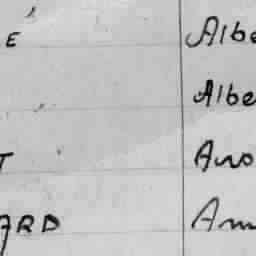 É Albe
Albe
T Ano
ARD Am